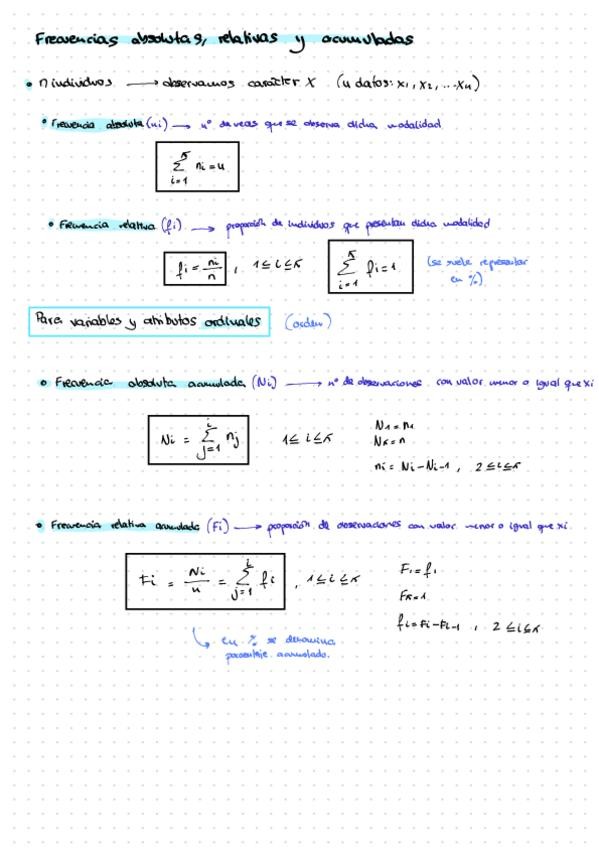 Frecuencias absolutas, relativas y acumuladas
• n individuos → observamos carácter X (n datos: x₁, x₂, ... xn)
• Frecuencia absoluta (ni) → nº de veces que se observa dicha modalidad
∑_{i=1}^{k} ni = n
• Frecuencia relativa (fi) → proporción de individuos que presentan dicha modalidad
fi = ni/n , 1 ≤ i ≤ k ∑_{i=1}^{k} fi = 1 (se suele representar
en %)
Para variables y atributos ordinales (orden)
• Frecuencia absoluta acumulada (Ni) → nº de observaciones con valor menor o igual que xi
Ni = ∑_{j=1}^{i} nj 1 ≤ i ≤ k
N₁ = n₁
Nk = n
ni = Ni - Ni-1 , 2 ≤ i ≤ k
• Frecuencia relativa acumulada (Fi) → proporción de observaciones con valor menor o igual que xi
Fi = Ni/n = ∑_{j=1}^{i} fi , 1 ≤ i ≤ k
F₁ = f₁
Fk = 1
fi = Fi - Fi-1 , 2 ≤ i ≤ k
↳ en % se denomina
porcentaje acumulado.